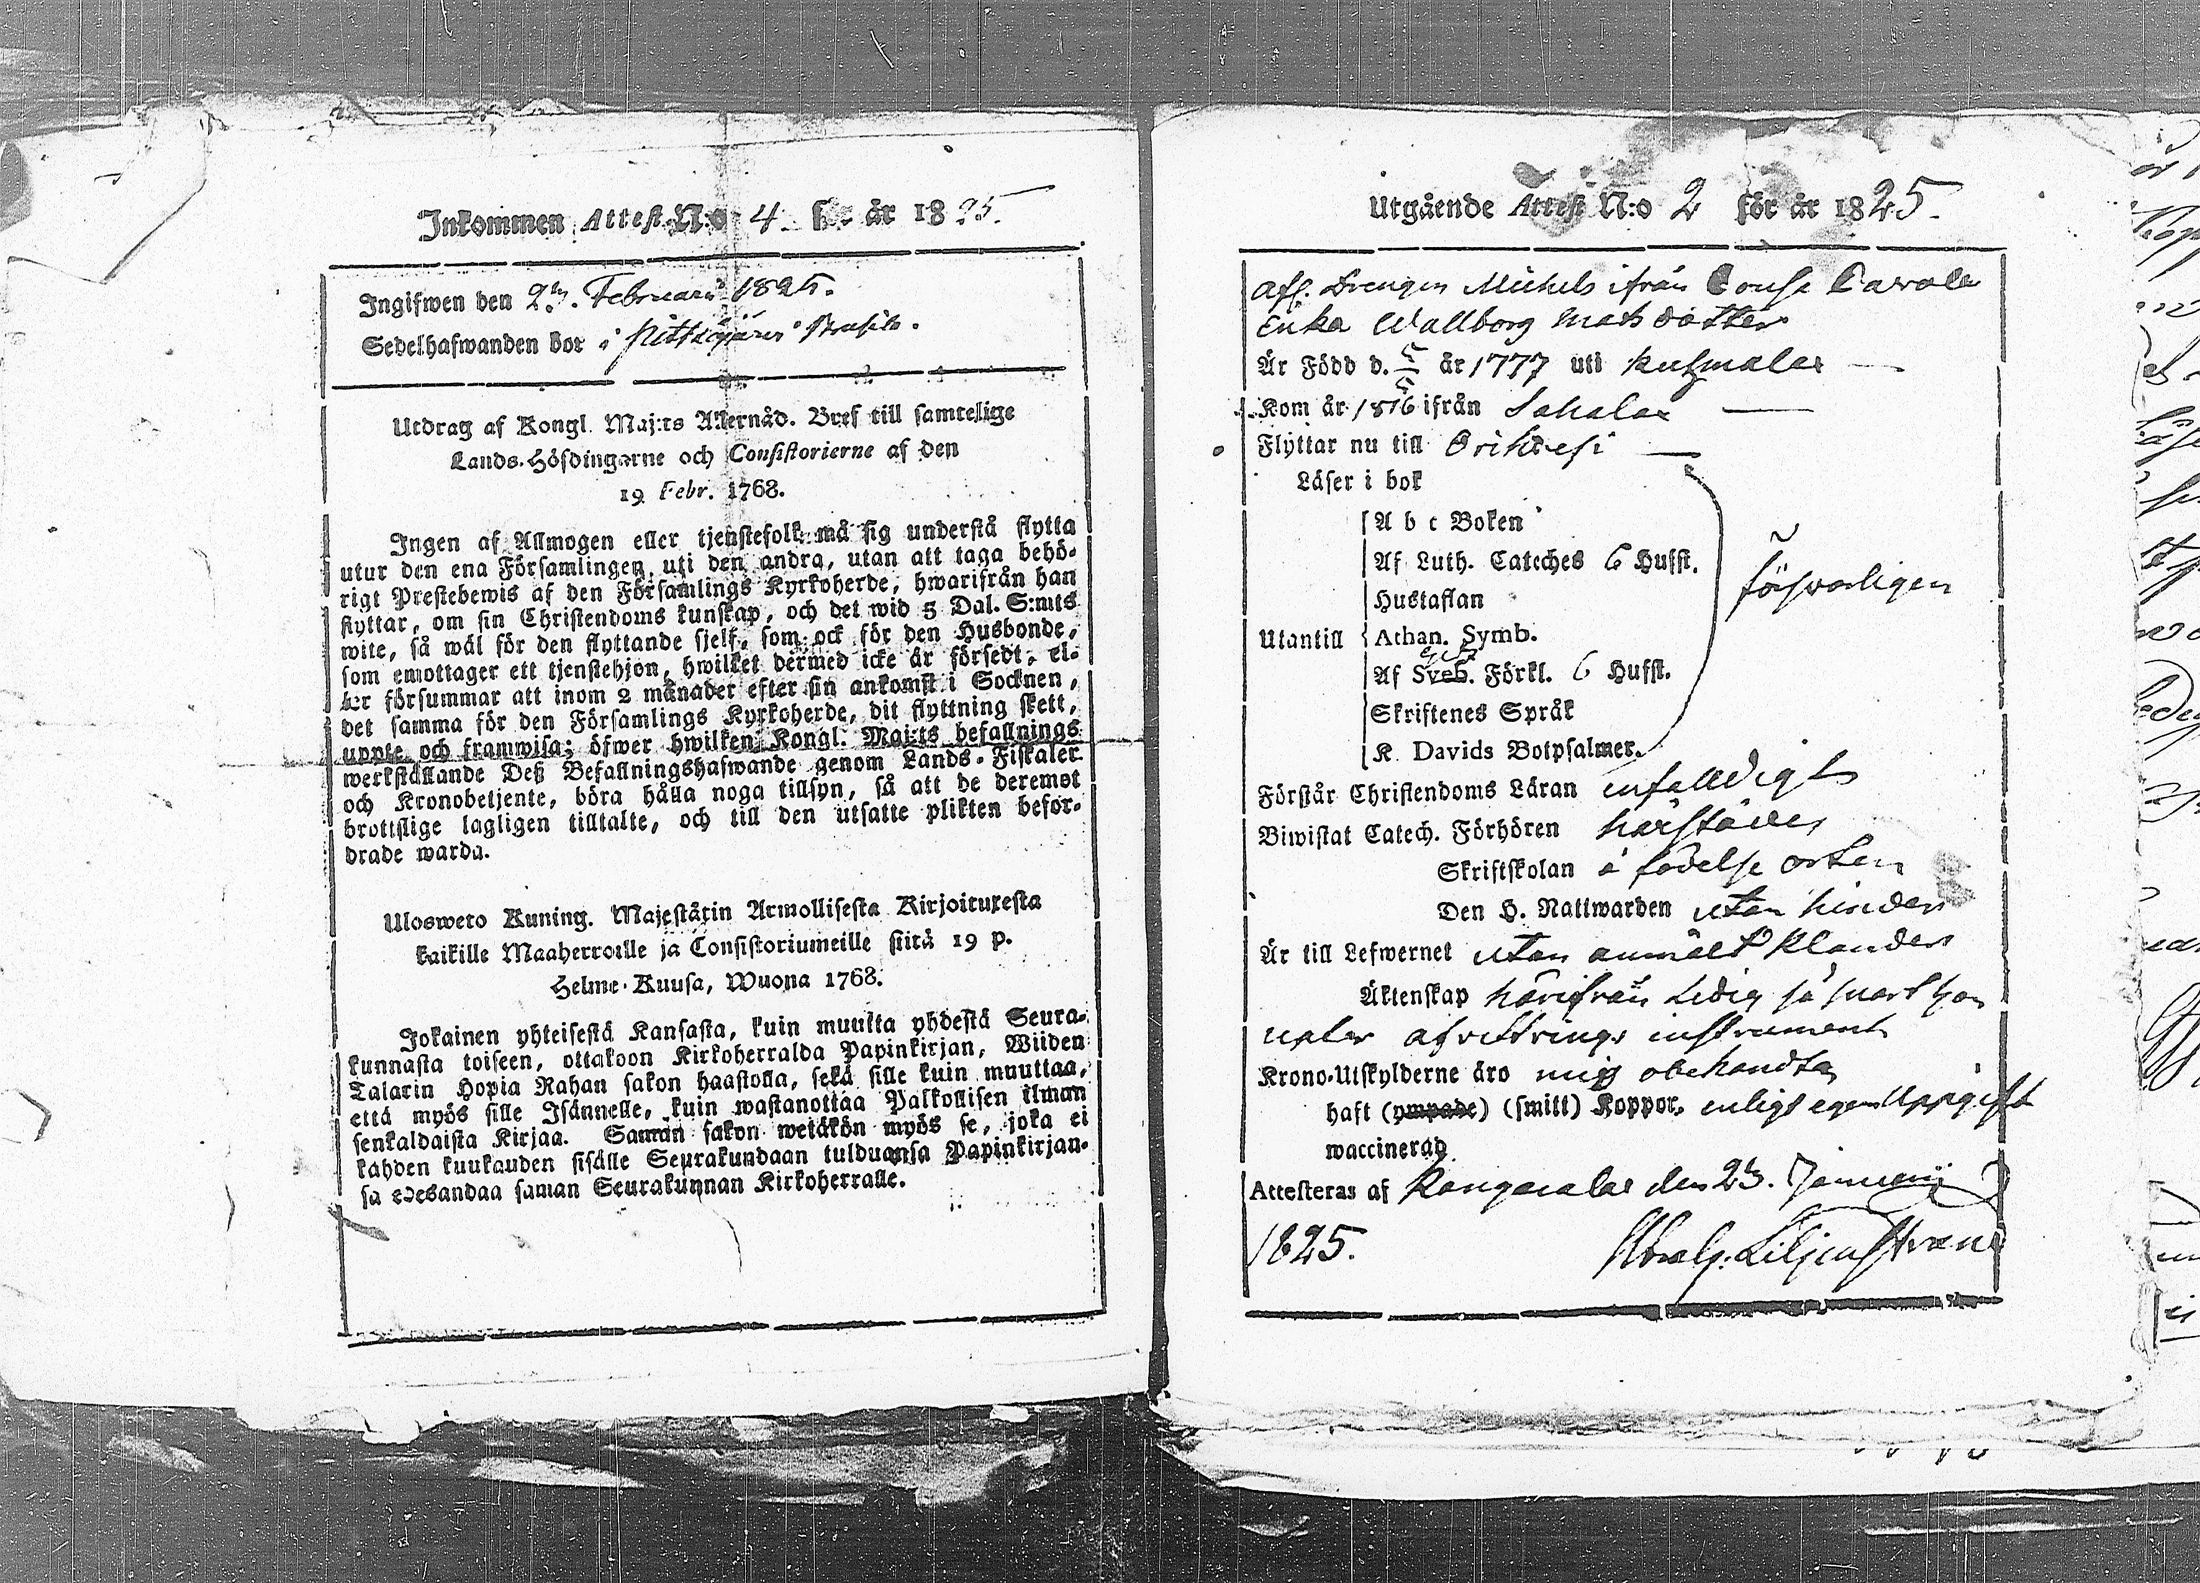 Inkommen Attest. N:o 4 för år 1825.
Ingifwen den 23. Februarii 1825.
Sedelhafwanden bor i
Utdrag af Kongl. Maj:ts Allernåd. Bref till samtelige
Lands-Höfdingarne och Consistorierne af den
19 Febr. 1768.
Ingen af Allmogen eller tjenstefolk må sig understå flytta
utur den ena Församlingen uti den andra, utan att taga behö-
rigt Prestebewis af den Församlings Kyrkoherde, hwarifrån han
flyttar, om sin Christendoms kunskap, och det wid 5 Dal. S:mts
wite, så wäl för den flyttande sjelf, som ock för den Husbonde,
som emottager ett tjenstehjon, hwilket dermed icke är försedt, el-
ler försummar att inom 2 månader efter sin ankomst i Socknen,
det samma för den Församlings Kyrkoherde, dit flyttning skett,
uppte och framwisa; öfwer hwilken Kongl. Maj:ts befallnings
werkställande Deß Befallningshafwande genom Lands-Fiskaler
och Kronobetjente, böra hålla noga tillsyn, så att de deremot
brottslige lagligen tilltalte, och till den utsatte plikten befor-
drade warda.
Ulosweto Kuning. Majestätin Armollisesta Kirjoituxesta
kaikille Maaherroille ja Consistoriumeille siitä 19 p.
Helme-Kuusa, Wuona 1768.
Jokainen yhteisestä Kansasta, kuin muutta yhdestä Seura-
kunnasta toiseen, ottakoon Kirkoherralda Papinkirjan, Wiiden
Talarin Hopia Rahan sakon haastolla, sekä sille kuin muuttaa,
että myös sille Isännelle, kuin wastanottaa Palkollisen ilman
senkaldaista Kirjaa. Saman sakon wetäkön myös se, joka ei
kahden kuukauden sisälle Seurakundaan tulduansa Papinkirjan-
sa edesandaa saman Seurakunnan Kirkoherralle.
Utgående Attest N:o 2 för år 1825.
Afl. Drengen Michels ifrån
Enka Wallborg Mats dotter
Är Född d. 5/5 år 1777 uti Kuhmalax
Kom år 1816 ifrån Sahalax
Flyttar nu till Orihvesi
Läser i bok
A b c Boken
Af Luth. Cateches 6 Hufst.
Hustaflan
försvarligen
Utantill Athan. Symb.
Af Sveb. Förkl. 6 Hufst.
Skriftenes Språk
K. Davids Botpsalmer.
Förstår Christendoms Läran enfalldigt
Biwistat Catech. Förhören härstädes
Skriftskolan i födelse orten
Den H. Nattwarden utan hinder
Är till Lefwernet utan anmält klander
Äktenskap härifrån Ledig så snart hon
uptar afvittrings instrument
Krono-Utskylderne äro mig obekandta
haft (ympade) (smitt) Koppor, enligt egen Uppgift
waccinerad
Attesteras af Kangasala den 23. Januarii
1825. Abrah: Liljenstrand